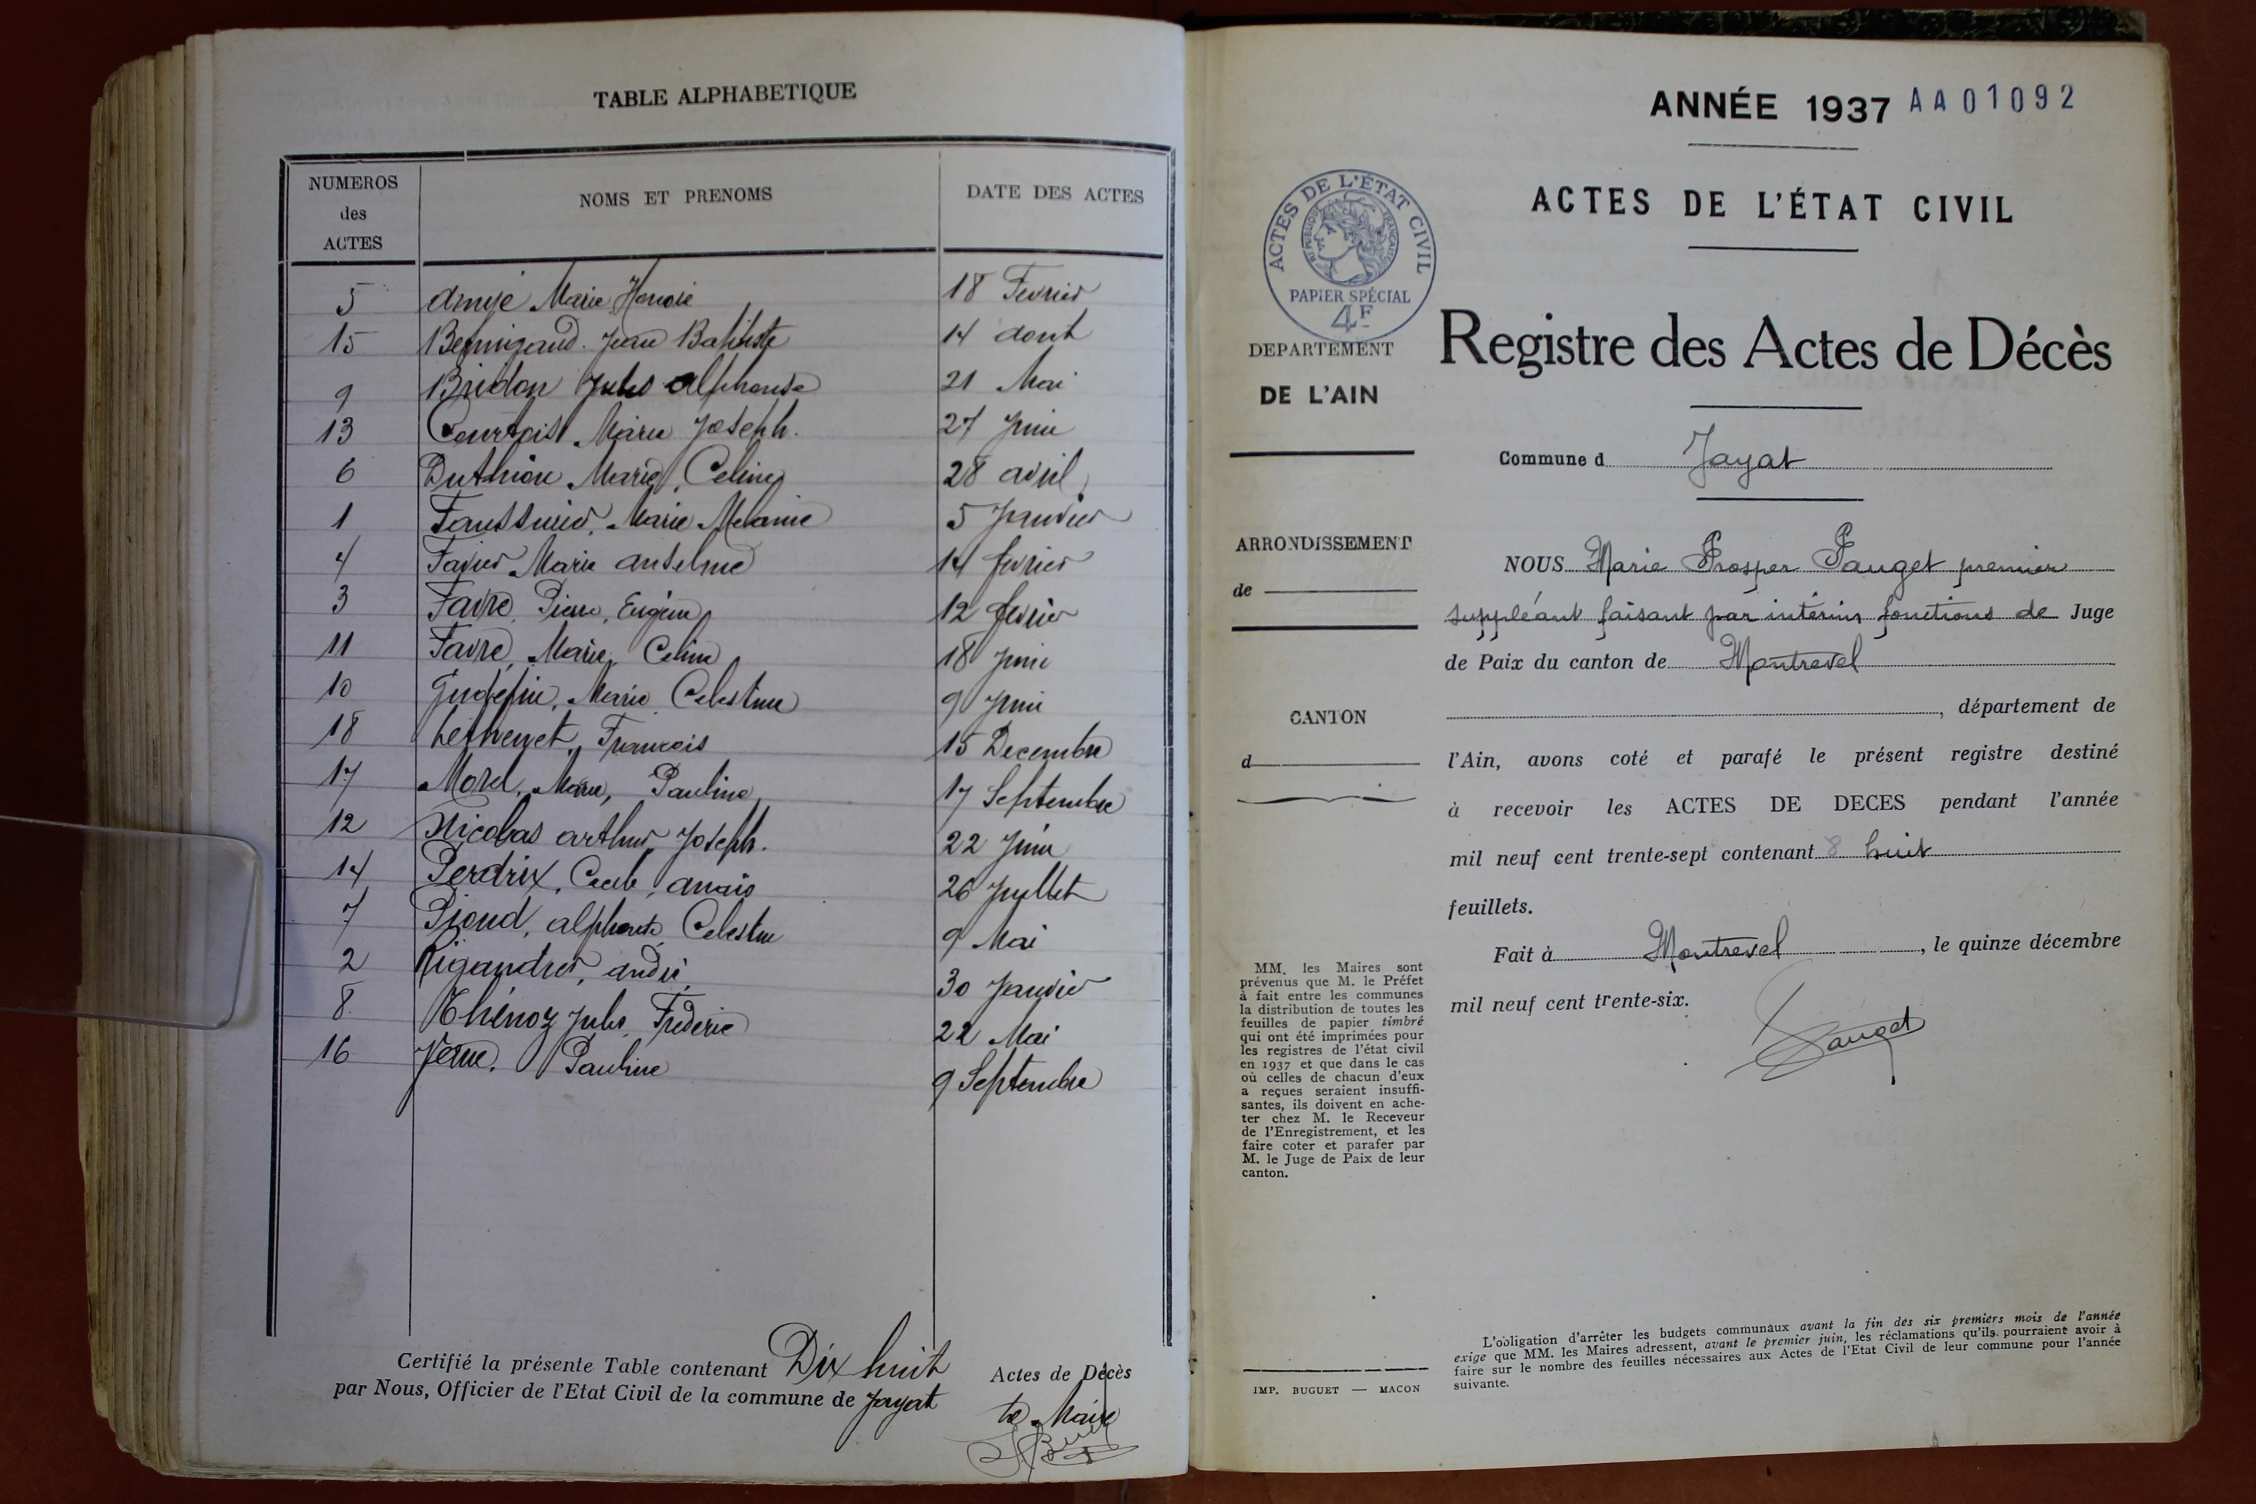 TABLE ALPHABETIQUE
NUMEROS des ACTES
NOMS ET PRENOMS
DATE DES ACTES
5 Marie Honoré 18 Fevrier
15 Jean Baptiste 14 aout
9 Bridon Jules alphonse 21 Mai
13 Courtois Marie Joseph. 27 Juin
6 Duthion Marie, Celine 28 avril
1 Marie Melanie 5 Janvier
4 Favier Marie anselme 14 fevrier
3 Favre, Pierre, Eugène 12 fevrier
11 Favre, Marie, Celine 18 Juin
10 Marie Celestine 9 Juin
18 François 15 Decembre
17 Morel, Marie, Pauline 17 Septembre
12 Nicolas arthur Joseph. 22 Juin
14 Perdrix, Cecile, anais 26 Juillet
7 Pioud, alphonse Celestin 9 Mai
2 andré 30 Janvier
8 Thénoz Jules, Frederic 22 Mai
16 Verne. Pauline 9 Septembre
Certifié la présente Table contenant Dix huit Actes de Décès
par Nous, Officier de l'Etat Civil de la commune de Jayat
Le Maire
ANNÉE 1937 AA01092
ACTES DE L'ÉTAT CIVIL
ACTES DE L'ÉTAT CIVIL
RÉPUBLIQUE FRANÇAISE
PAPIER SPÉCIAL
4F
DEPARTEMENT
DE L'AIN
Registre des Actes de Décès
Commune d Jayat
ARRONDISSEMENT
de
CANTON
d
NOUS Marie Prosper Pauget premier
suppléant faisant par intérim fonctions de Juge
de Paix du canton de Montrevel
, département de
l'Ain, avons coté et parafé le présent registre destiné
à recevoir les ACTES DE DECES pendant l'année
mil neuf cent trente-sept contenant 8 huit
feuillets.
Fait à Montrevel, le quinze décembre
mil neuf cent trente-six.
Pauget
MM. les Maires sont
prévenus que M. le Préfet
à fait entre les communes
la distribution de toutes les
feuilles de papier timbré
qui ont été imprimées pour
les registres de l'état civil
en 1937 et que dans le cas
où celles de chacun d'eux
a reçues seraient insuffi-
santes, ils doivent en ache-
ter chez M. le Receveur
de l'Enregistrement, et les
faire coter et parafer par
M. le Juge de Paix de leur
canton.
IMP. BUGUET — MACON
L'obligation d'arrêter les budgets communaux avant la fin des six premiers mois de l'année
exige que MM. les Maires adressent, avant le premier juin, les réclamations qu'ils pourraient avoir à
faire sur le nombre des feuilles nécessaires aux Actes de l'Etat Civil de leur commune pour l'année
suivante.